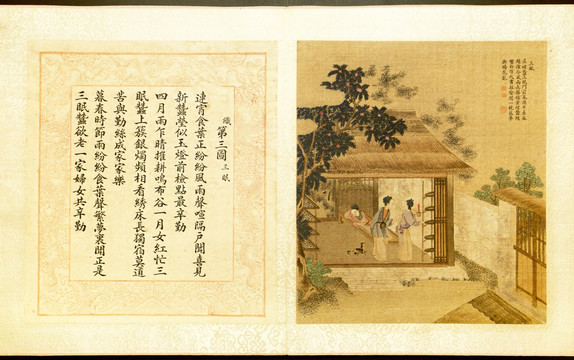 織 第三圖 三眠
連宵食葉正紛紛風雨聲喧隔戶聞喜見
新蠶瑩似玉燈前檢點最辛勤
四月雨乍晴摧耕鳴布谷一月女紅忙三
眠蠶上簇銀燭頻相看綉床長獨宿莫道
苦與勤絲成家家樂
暮春時節雨紛紛食葉聲繁夢裏聞正是
三眠蠶欲老一家婦女共辛勤
三眠